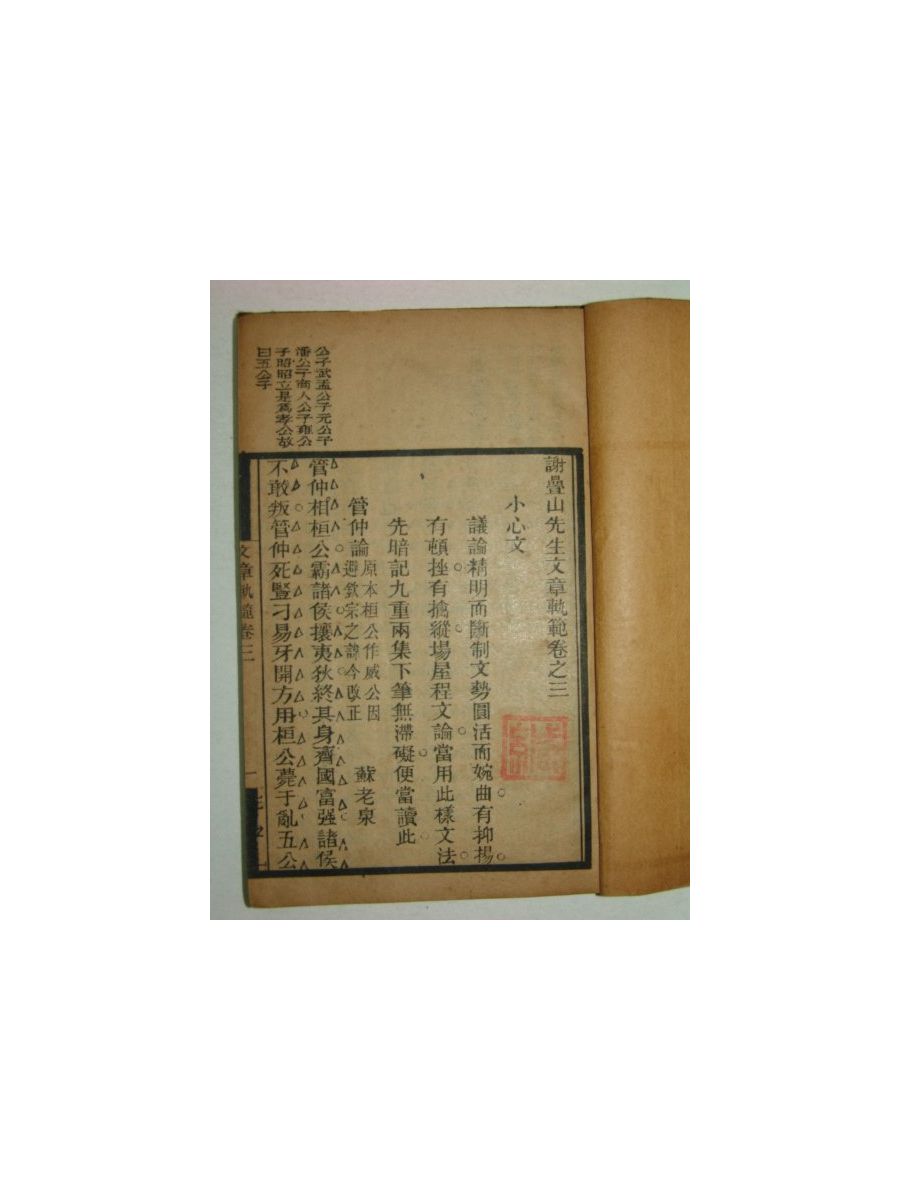 謝疊山先生文章軌範卷之三
小心文
議論精明而斷制文勢圓活而婉曲有抑揚
有頓挫有擒縱場屋程文論當用此樣文法
先暗記九重兩集下筆無滯礙便當讀此
管仲論 原本桓公作威公因
避欽宗之諱今改正 蘇老泉
管仲相桓公霸諸侯攘夷狄終其身齊國富强諸侯
不敢叛管仲死豎刁易牙開方用桓公薨于亂五公
公子武孟公子元公子
潘公子商人公子雍公
子昭昭立是爲孝公故
曰五公子
文章軌範卷三